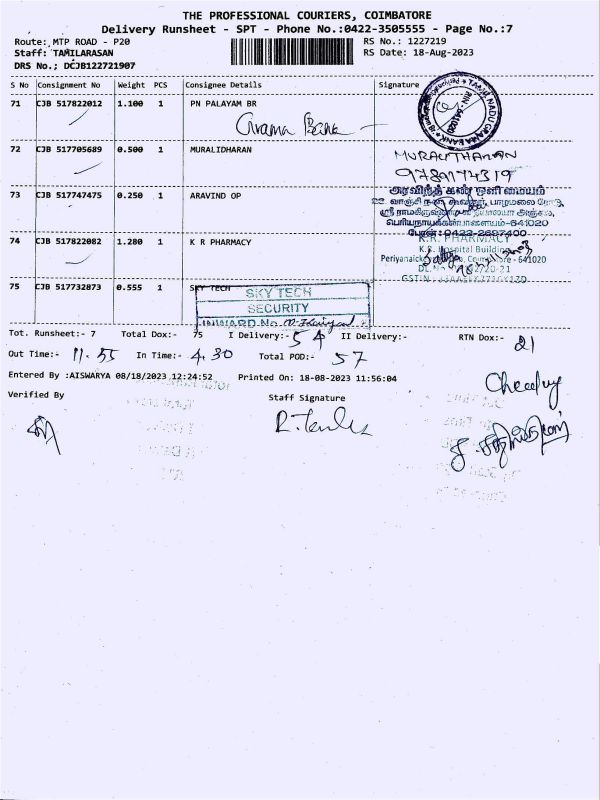 THE PROFESSIONAL COURIERS, COIMBATORE
Delivery Runsheet - SPT - Phone No.:0422-3505555 - Page No.:7
Route: MTP ROAD - P20 RS No.: 1227219
Staff: TAMILARASAN RS Date: 18-Aug-2023
DRS No.; DCJB122721907
S No Consignment No Weight PCS Consignee Details Signature
71 CJB 517822012 1.100 1 PN PALAYAM BR
Grama Bank
TAMIL NADU GRAMA BANK
PIN: 641020
72 CJB 517705689 0.500 1 MURALIDHARAN
MURALITHARAN
9789174319
73 CJB 517747475 0.250 1 ARAVIND OP
அரவிந்த் கண் ஒளி மையம்
பெரியநாயக்கன்பாளையம்-641020
போன்:0422-2697400
74 CJB 517822082 1.280 1 K R PHARMACY
K.R. PHARMACY
K.R. Hospital Building
641020
75 CJB 517732873 0.555 1 SKY TECH
SKY TECH
SECURITY
INWARD No
Tot. Runsheet:- 7 Total Dox:- 75 I Delivery:- 54 II Delivery:- RTN Dox:- 21
Out Time:- 11.55 In Time:- 4.30 Total POD:- 57
Entered By :AISWARYA 08/18/2023 12:24:52 Printed On: 18-08-2023 11:56:04
Verified By Staff Signature